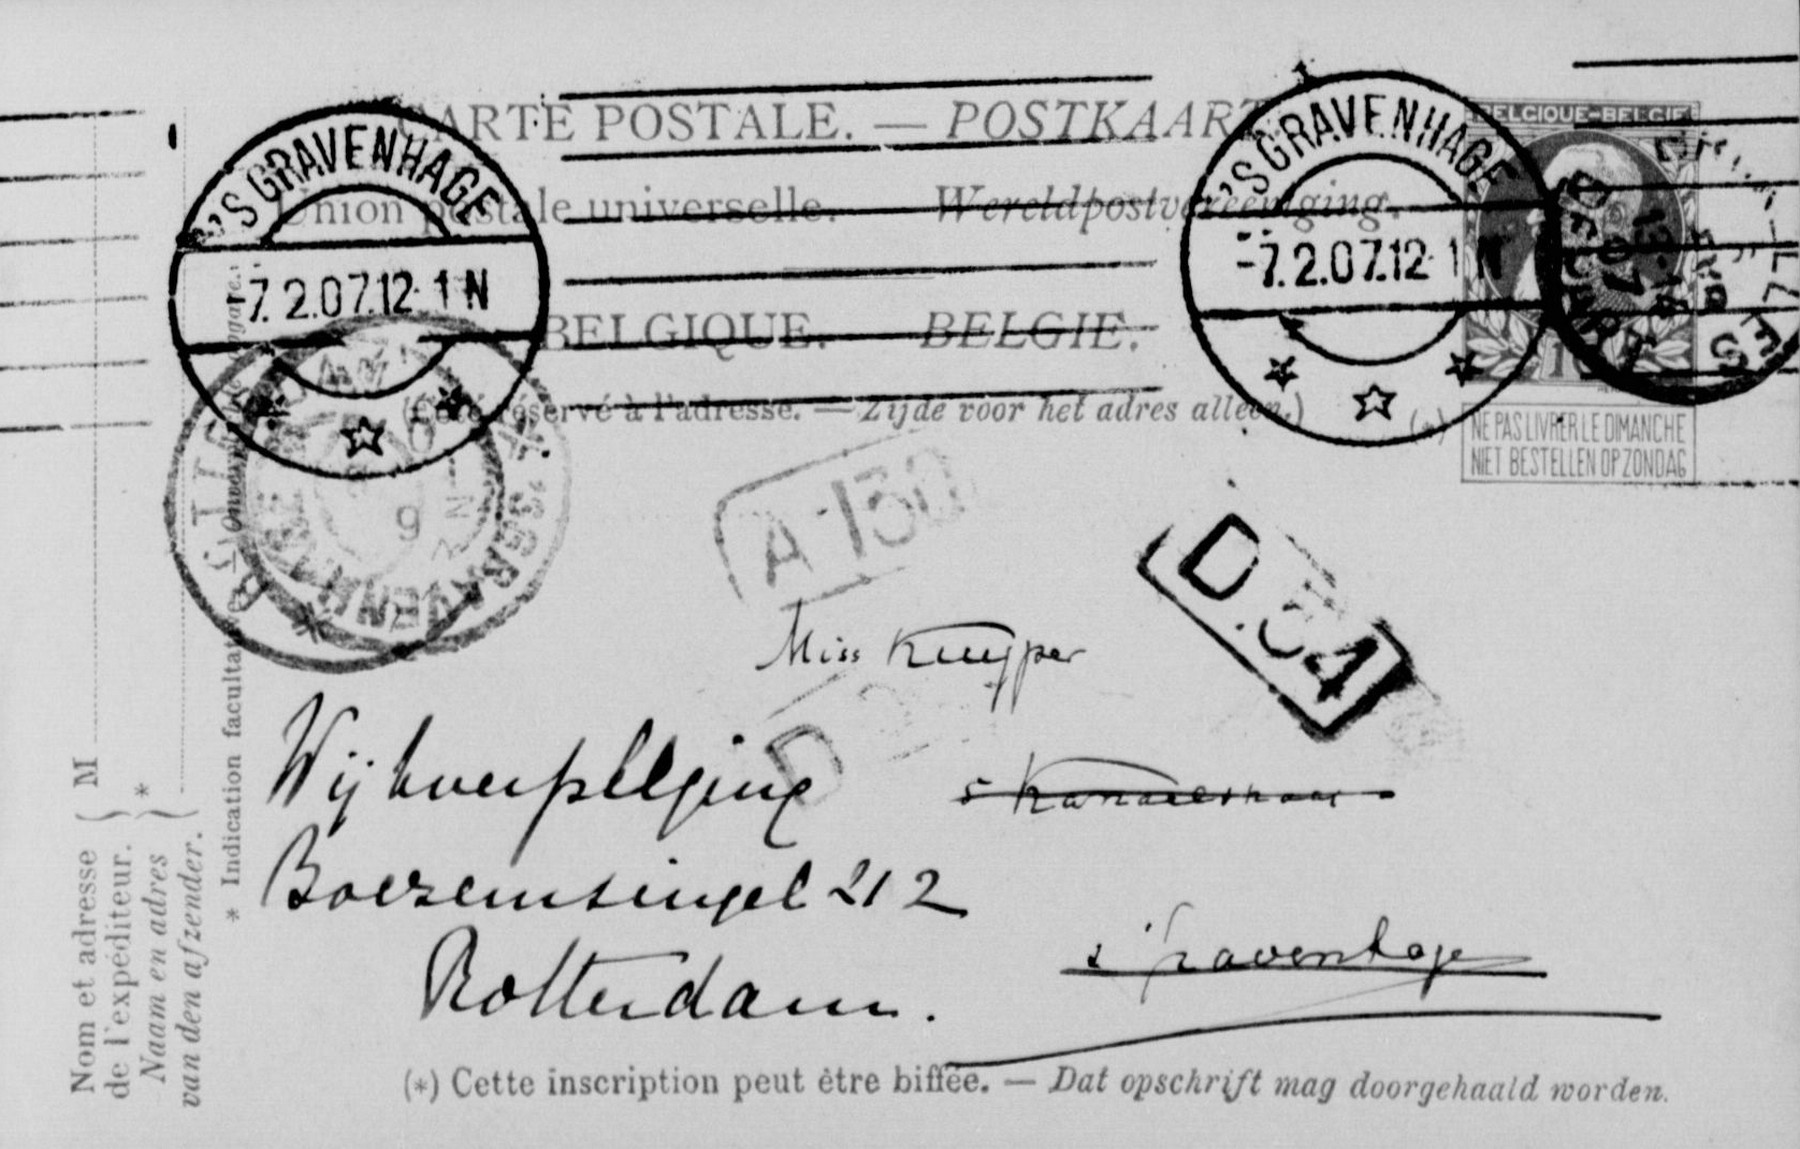 CARTE POSTALE. — POSTKAART
Union postale universelle. Wereldpostvereeniging.
BELGIQUE. BELGIE.
(Côté réservé à l'adresse. — Zijde voor het adres alleen.)
'S GRAVENHAGE
-7.2.07.12-1 N
'S GRAVENHAGE
-7.2.07.12-1 N
BELGIQUE-BELGIË
(*)
NE PAS LIVRER LE DIMANCHE
NIET BESTELLEN OP ZONDAG
'S GRAVENHAGE
A-130
D.34
D
Miss Kuyper
Wijkverpleging
Boezemsingel 212
Rotterdam.
s'Gravenhage
(*) Cette inscription peut être biffée. — Dat opschrift mag doorgehaald worden.
Nom et adresse
de l'expéditeur.
Naam en adres
van den afzender.
M
*
* Indication facultative.